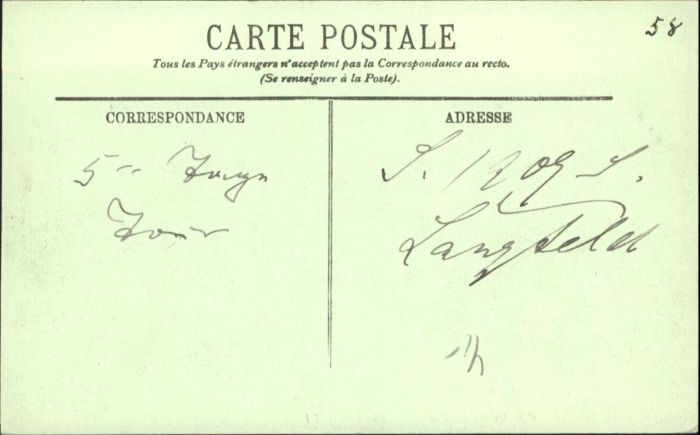 58
CARTE POSTALE
Tous les Pays étrangers n'acceptent pas la Correspondance au recto.
(Se renseigner à la Poste).
CORRESPONDANCE
ADRESSE
5
S. 1209 S.
Langfeld